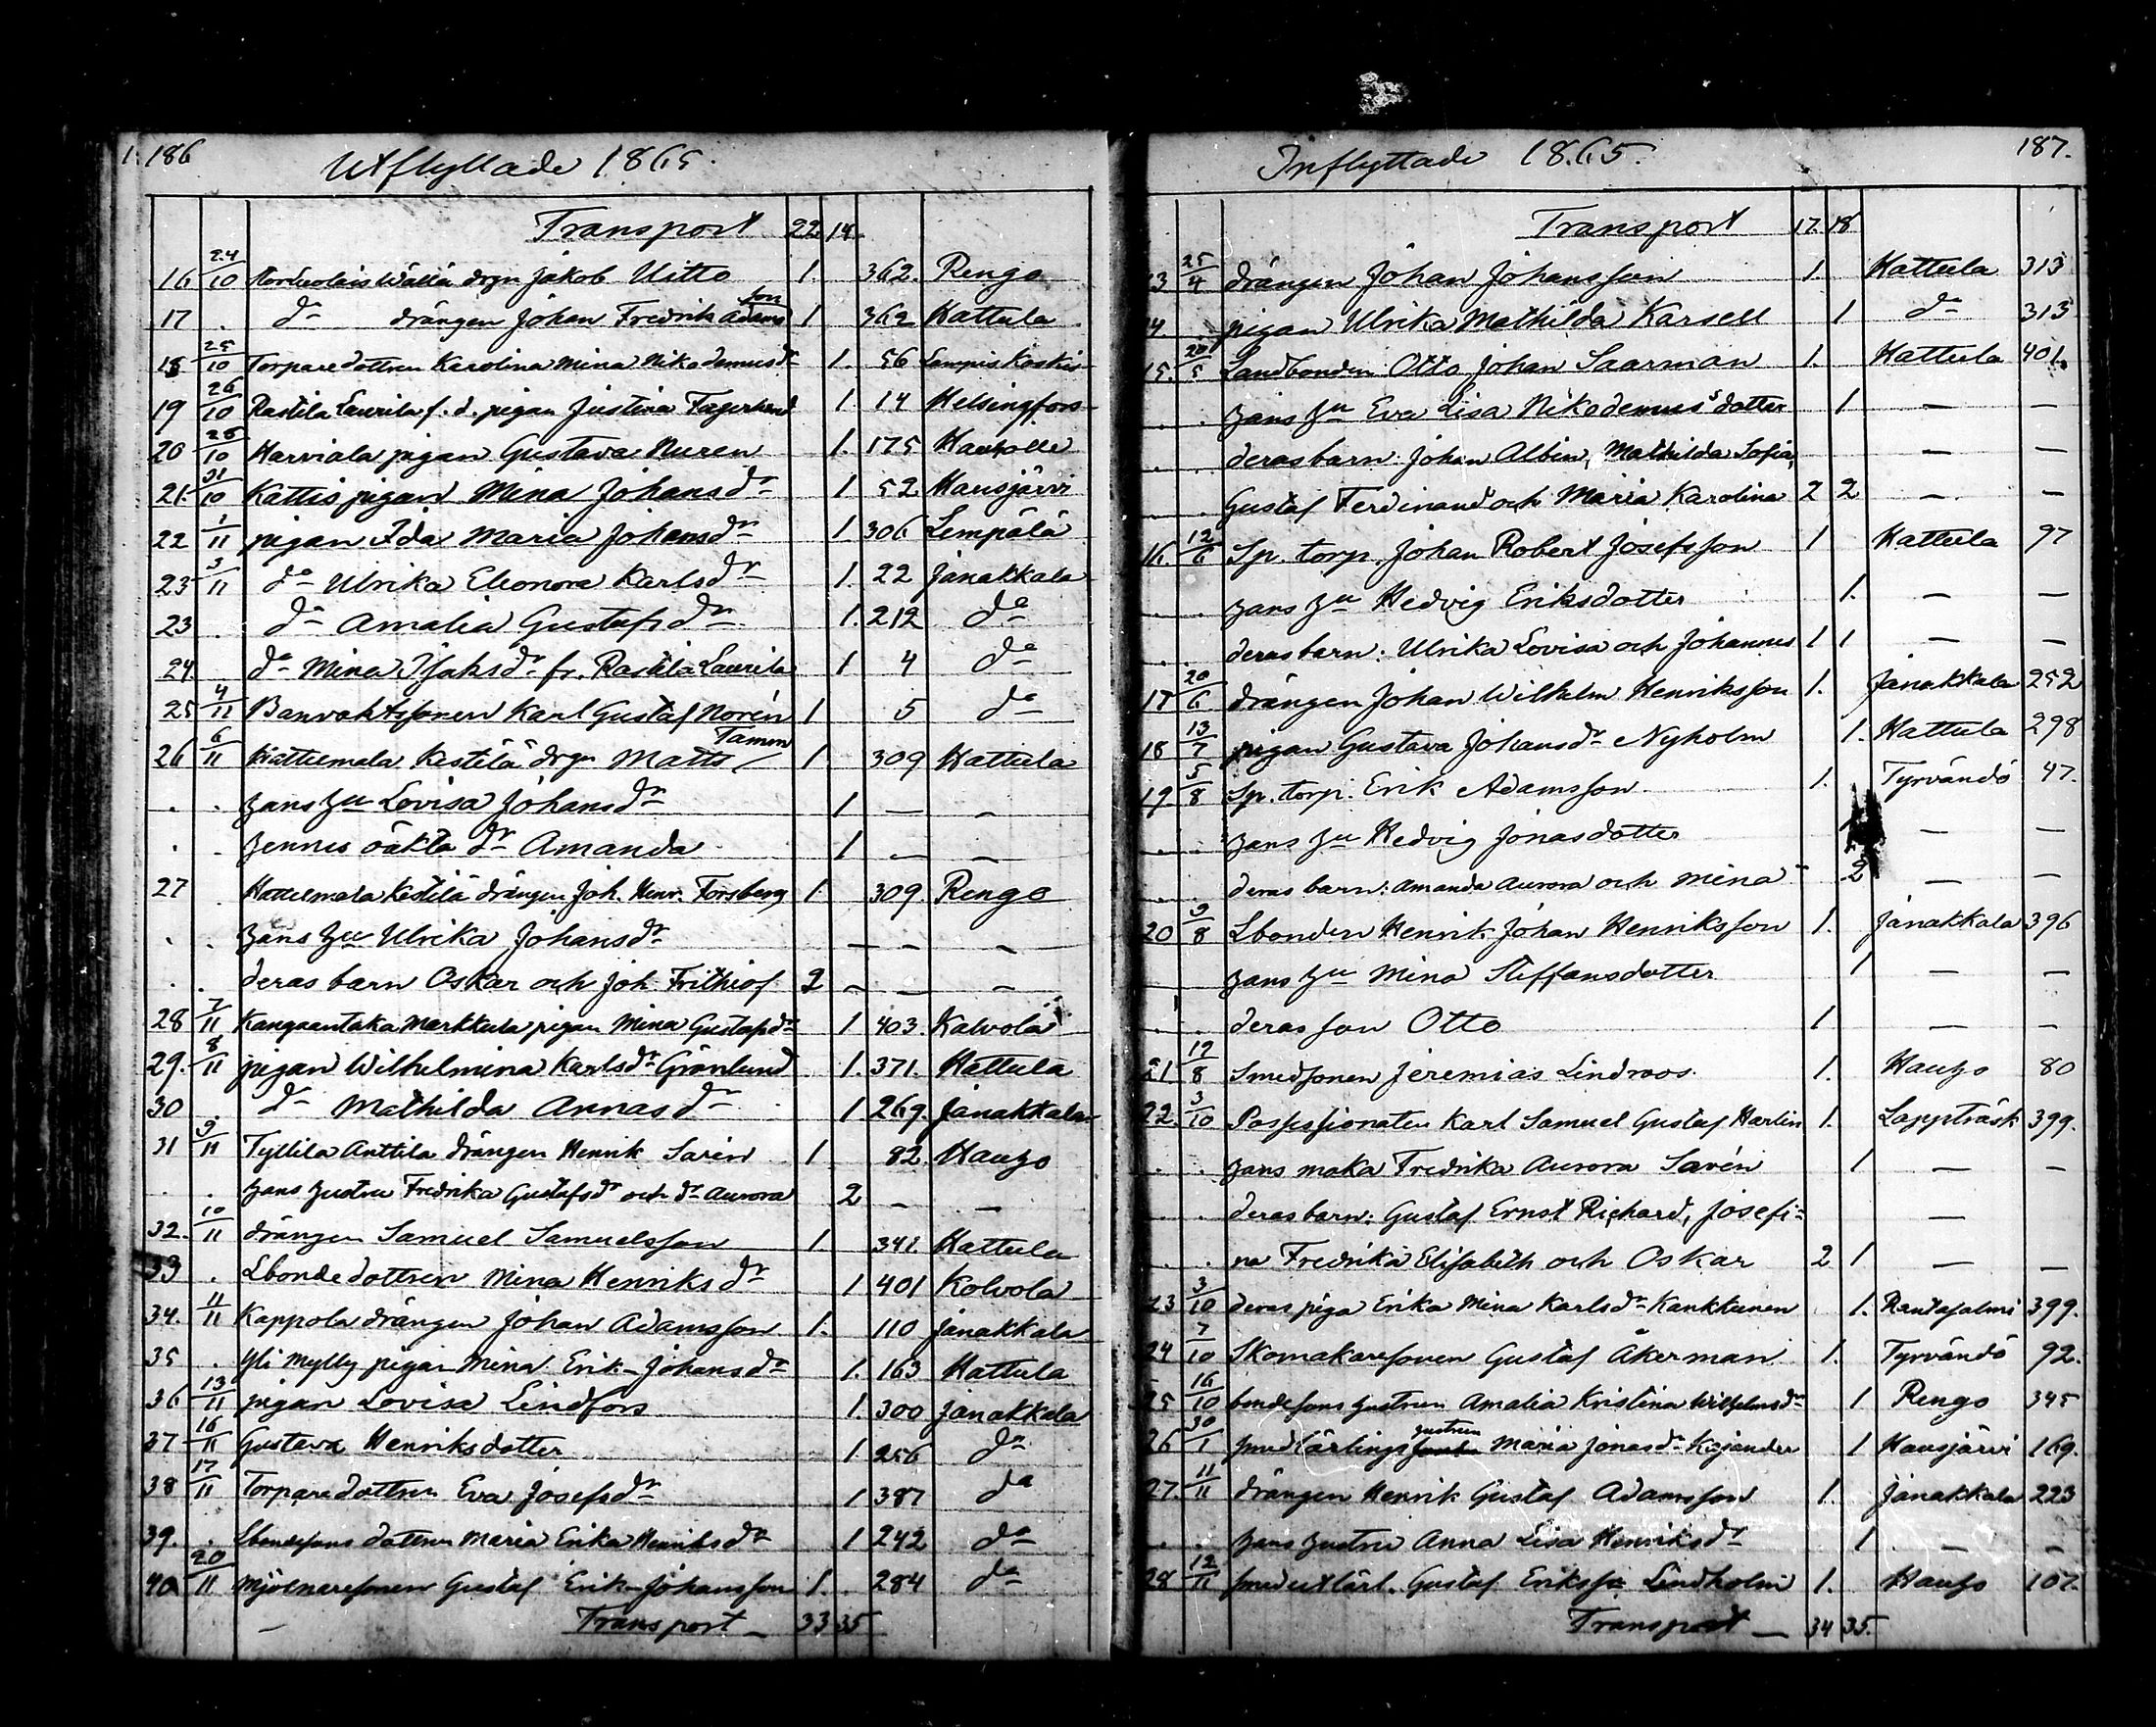 186
Utflyttade 1865.
Transport 22 14
16 24/10 Wälilä drgn Jakob Uitto 1. 362. Rengo
17 . do drängen Johan Fredrik Adamsson 1 362 Hattula
18 25/10 Torparedottren Karolina Mina Nikodemusdr 1. 56 Lampis Koskis
19 26/10 Rastila Laurila f. d. pigan Justina Fagerlund 1. 14 Helsingfors
20 26/10 Harviala pigan Gustava Nuren 1. 175 Hauholle
21. 31/10 Kattis pigan Mina Johansdr 1 52 Hausjärvi
22 1/11 pigan Ida Maria Johansdr 1 306 Lempälä
23 3/11 do Ulrika Eleonora Karlsdr 1. 22 Janakkala
23 . do Amalia Gustafsdr 1. 212 do
24. do Mina Isaksdr fr. Rastila Laurila 1 4 do
25 4/11 Banvaktssonen Karl Gustaf Norén 1 5 do
26 6/11 Hattelmala Kestilä drgn Matts Tamm 1 309 Hattula
. . hans hu Lovisa Johansdr 1 — —
. . hennes oäkta dr Amanda 1 — —
27 . Hattelmala Kestilä drängen Joh. Henr. Forsberg 1 309. Rengo
. . hans hu Ulrika Johansdr — — —
. . deras barn Oskar och Joh. Frithiof 2 — — —
28 7/11 Kangaantaka Markkula pigan Mina Gustafsdr 1 403 Kalvola
29. 8/11 pigan Wilhelmina Karlsdr Grönlund 1. 371. Hattula
30 . do Mathilda Annasdr 1 269. Janakkala
31 9/11 Tyllilä Anttila drängen Henrik Sarén 1 82. Hauho
. . hans hustru Fredrika Gustafsdr och dr Aurora 2 — —
32. 10/11 drängen Samuel Samuelsson 1. 341. Hattula
33 . Lbondedottren Mina Henriksdr 1 401 Kolvola
34. 11/11 Kappola drängen Johan Adamsson 1. 110 Janakkala
35 . Yli Mylly pigan Mina Erik-Johansdr 1. 163 Hattula
36 13/11 pigan Lovisa Lindfors 1. 300 Janakkala
37 16/11 Gustava Henriksdotter 1. 256 do
38 17/11 Torparedottren Eva Josefsdr 1 387 do
39. . Lbondesons dottren Maria Erika Henriksdr 1 242 do
40 20/11 Mjölnaresonen Gustaf Erik-Johansson 1. 284 do
Transport — 33 35
187.
Inflyttade 1865.
Transport 17. 18
13 25/4 drängen Johan Johansson 1. Hattula 313
14 pigan Ulrika Mathilda Karsell 1 do 313
15. 20/5 Landbonden Otto Johan Saarman 1. Hattula 401.
. . hans hu Eva Lisa Nikodemusdotter 1 — —
. . deras barn: Johan Albin, Mathilda Sofia, — —
. . Gustaf Ferdinand och Maria Karolina 2 2 — —
16. 12/6 Sp. torp. Johan Robert Josefsson 1 Hattula 97
. . hans hu Hedvig Eriksdotter 1. — —
. . deras barn: Ulrika Lovisa och Johannes 1 1 — —
17 20/6 drängen Johan Wilhelm Henriksson 1. Janakkala 252
18 13/7 pigan Gustava Johansdr Nyholm 1. Hattula 298
19. 5/8 Sp. torp. Erik Adamsson 1. Tyrvändö 47.
. . hans hu Hedvig Jonasdotter — —
. . deras barn: Amanda Aurora och Mina 2 — —
20 9/8 Lbonden Henrik Johan Henriksson 1. Janakkala 396
hans hu Mina Steffansdotter 1 — —
. . deras son Otto 1 — —
21. 12/8 Smedsonen Jeremias Lindroos 1. Hauho 80
22. 3/10 Possessionaten Karl Samuel Gustaf Harlin 1. Lappträsk 399.
. . hans maka Fredrika Aurora Savén 1 — —
. . deras barn: Gustaf Ernst Richard, Josefi- —
. . na Fredrika Elisabeth och Oskar 2 1 — —
23 3/10 deras piga Erika Mina Karlsdr Kankkunen 1. Rantasalmi 399.
24 7/10 Skomakaresonen Gustaf Åkerman 1. Tyrvändö 92.
25 16/10 bondesons hustrun Amalia Kristina Wilhelmsdr 1 Rengo 345
26 30/1 smedlärlings hustrun Maria Jonasdr Kojander 1 Hausjärvi 169.
27. 11/11 drängen Henrik Gustaf Adamsson 1. Janakkala 223
. . hans hustru Anna Lisa Henriksdr 1 — —
28 12/11 smedutlärl. Gustaf Eriksson Lindholm 1. Hauho 107.
Transport — 34 35.